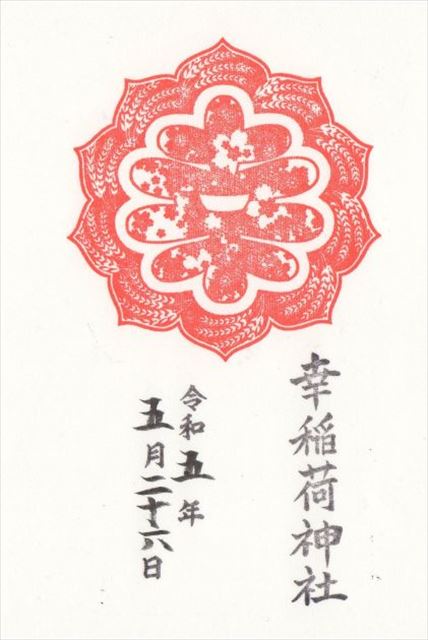 幸稲荷神社
令和五年
五月二十六日